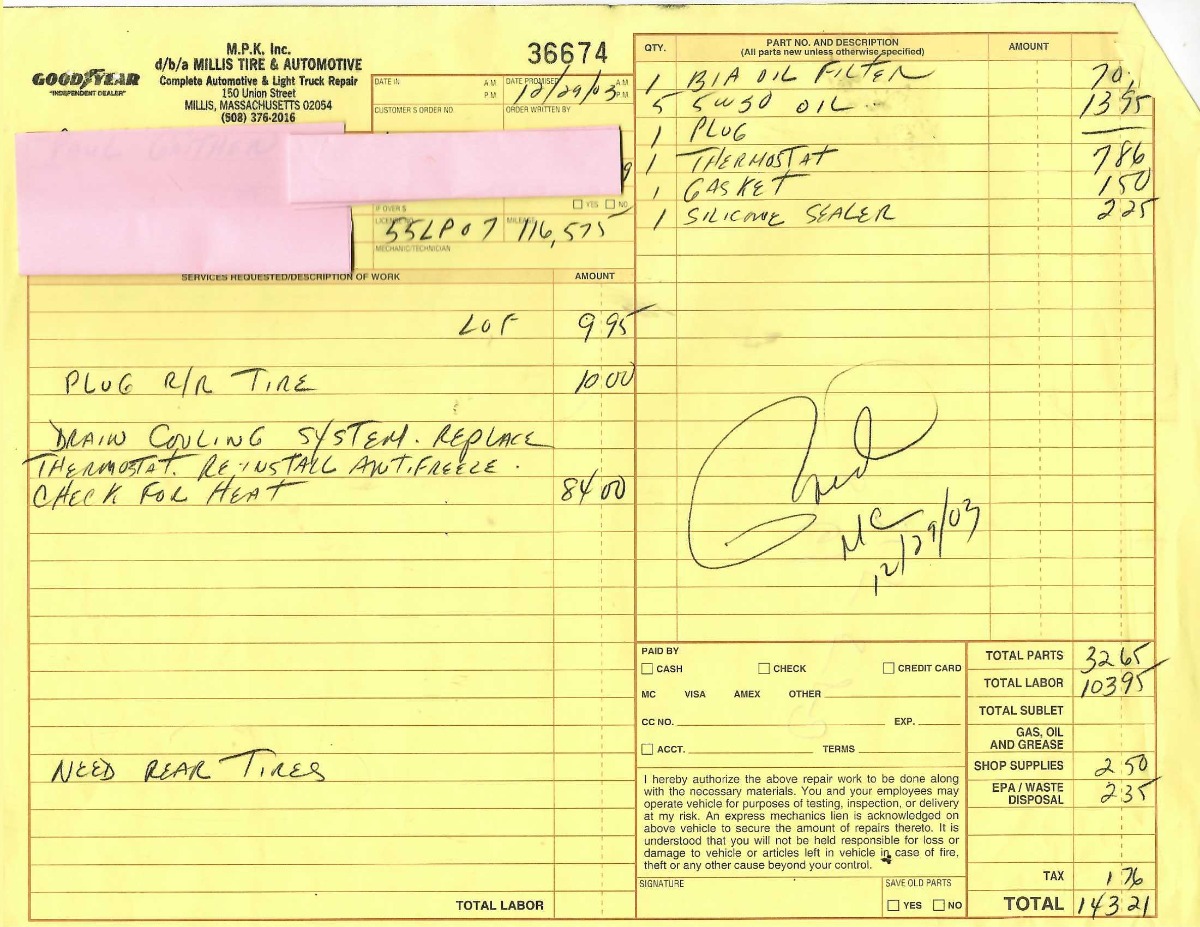 M.P.K. Inc.
d/b/a MILLIS TIRE & AUTOMOTIVE
GOODYEAR
"INDEPENDENT DEALER"
Complete Automotive & Light Truck Repair
150 Union Street
MILLIS, MASSACHUSETTS 02054
(508) 376-2016
36674
DATE IN AM PM
DATE PROMISED 12/29/03 AM PM
CUSTOMER'S ORDER NO.
ORDER WRITTEN BY
IF OVER $
YES NO
LICENSE NO. 55LP07 MILEAGE 116,575
MECHANIC/TECHNICIAN
SERVICES REQUESTED/DESCRIPTION OF WORK AMOUNT
LOF 9 95
PLUG R/R TIRE 10 00
DRAIN COOLING SYSTEM. REPLACE
THERMOSTAT. RE-INSTALL ANTIFREEZE.
CHECK FOR HEAT 84 00
NEED REAR TIRES
TOTAL LABOR
QTY. PART NO. AND DESCRIPTION AMOUNT
(All parts new unless otherwise specified)
1 OIL FILTER
5 5W30 OIL 13 95
1 PLUG —
1 THERMOSTAT 7 86
1 GASKET 1 50
1 SILICONE SEALER 2 25
MC
12/29/03
PAID BY
CASH CHECK CREDIT CARD
MC VISA AMEX OTHER
CC NO. EXP.
ACCT. TERMS
I hereby authorize the above repair work to be done along
with the necessary materials. You and your employees may
operate vehicle for purposes of testing, inspection, or delivery
at my risk. An express mechanics lien is acknowledged on
above vehicle to secure the amount of repairs thereto. It is
understood that you will not be held responsible for loss or
damage to vehicle or articles left in vehicle in case of fire,
theft or any other cause beyond your control.
SIGNATURE
SAVE OLD PARTS
YES NO
TOTAL PARTS 32 65
TOTAL LABOR 103 95
TOTAL SUBLET
GAS, OIL
AND GREASE
SHOP SUPPLIES 2 50
EPA / WASTE
DISPOSAL 2 35
TAX 1 76
TOTAL 143 21